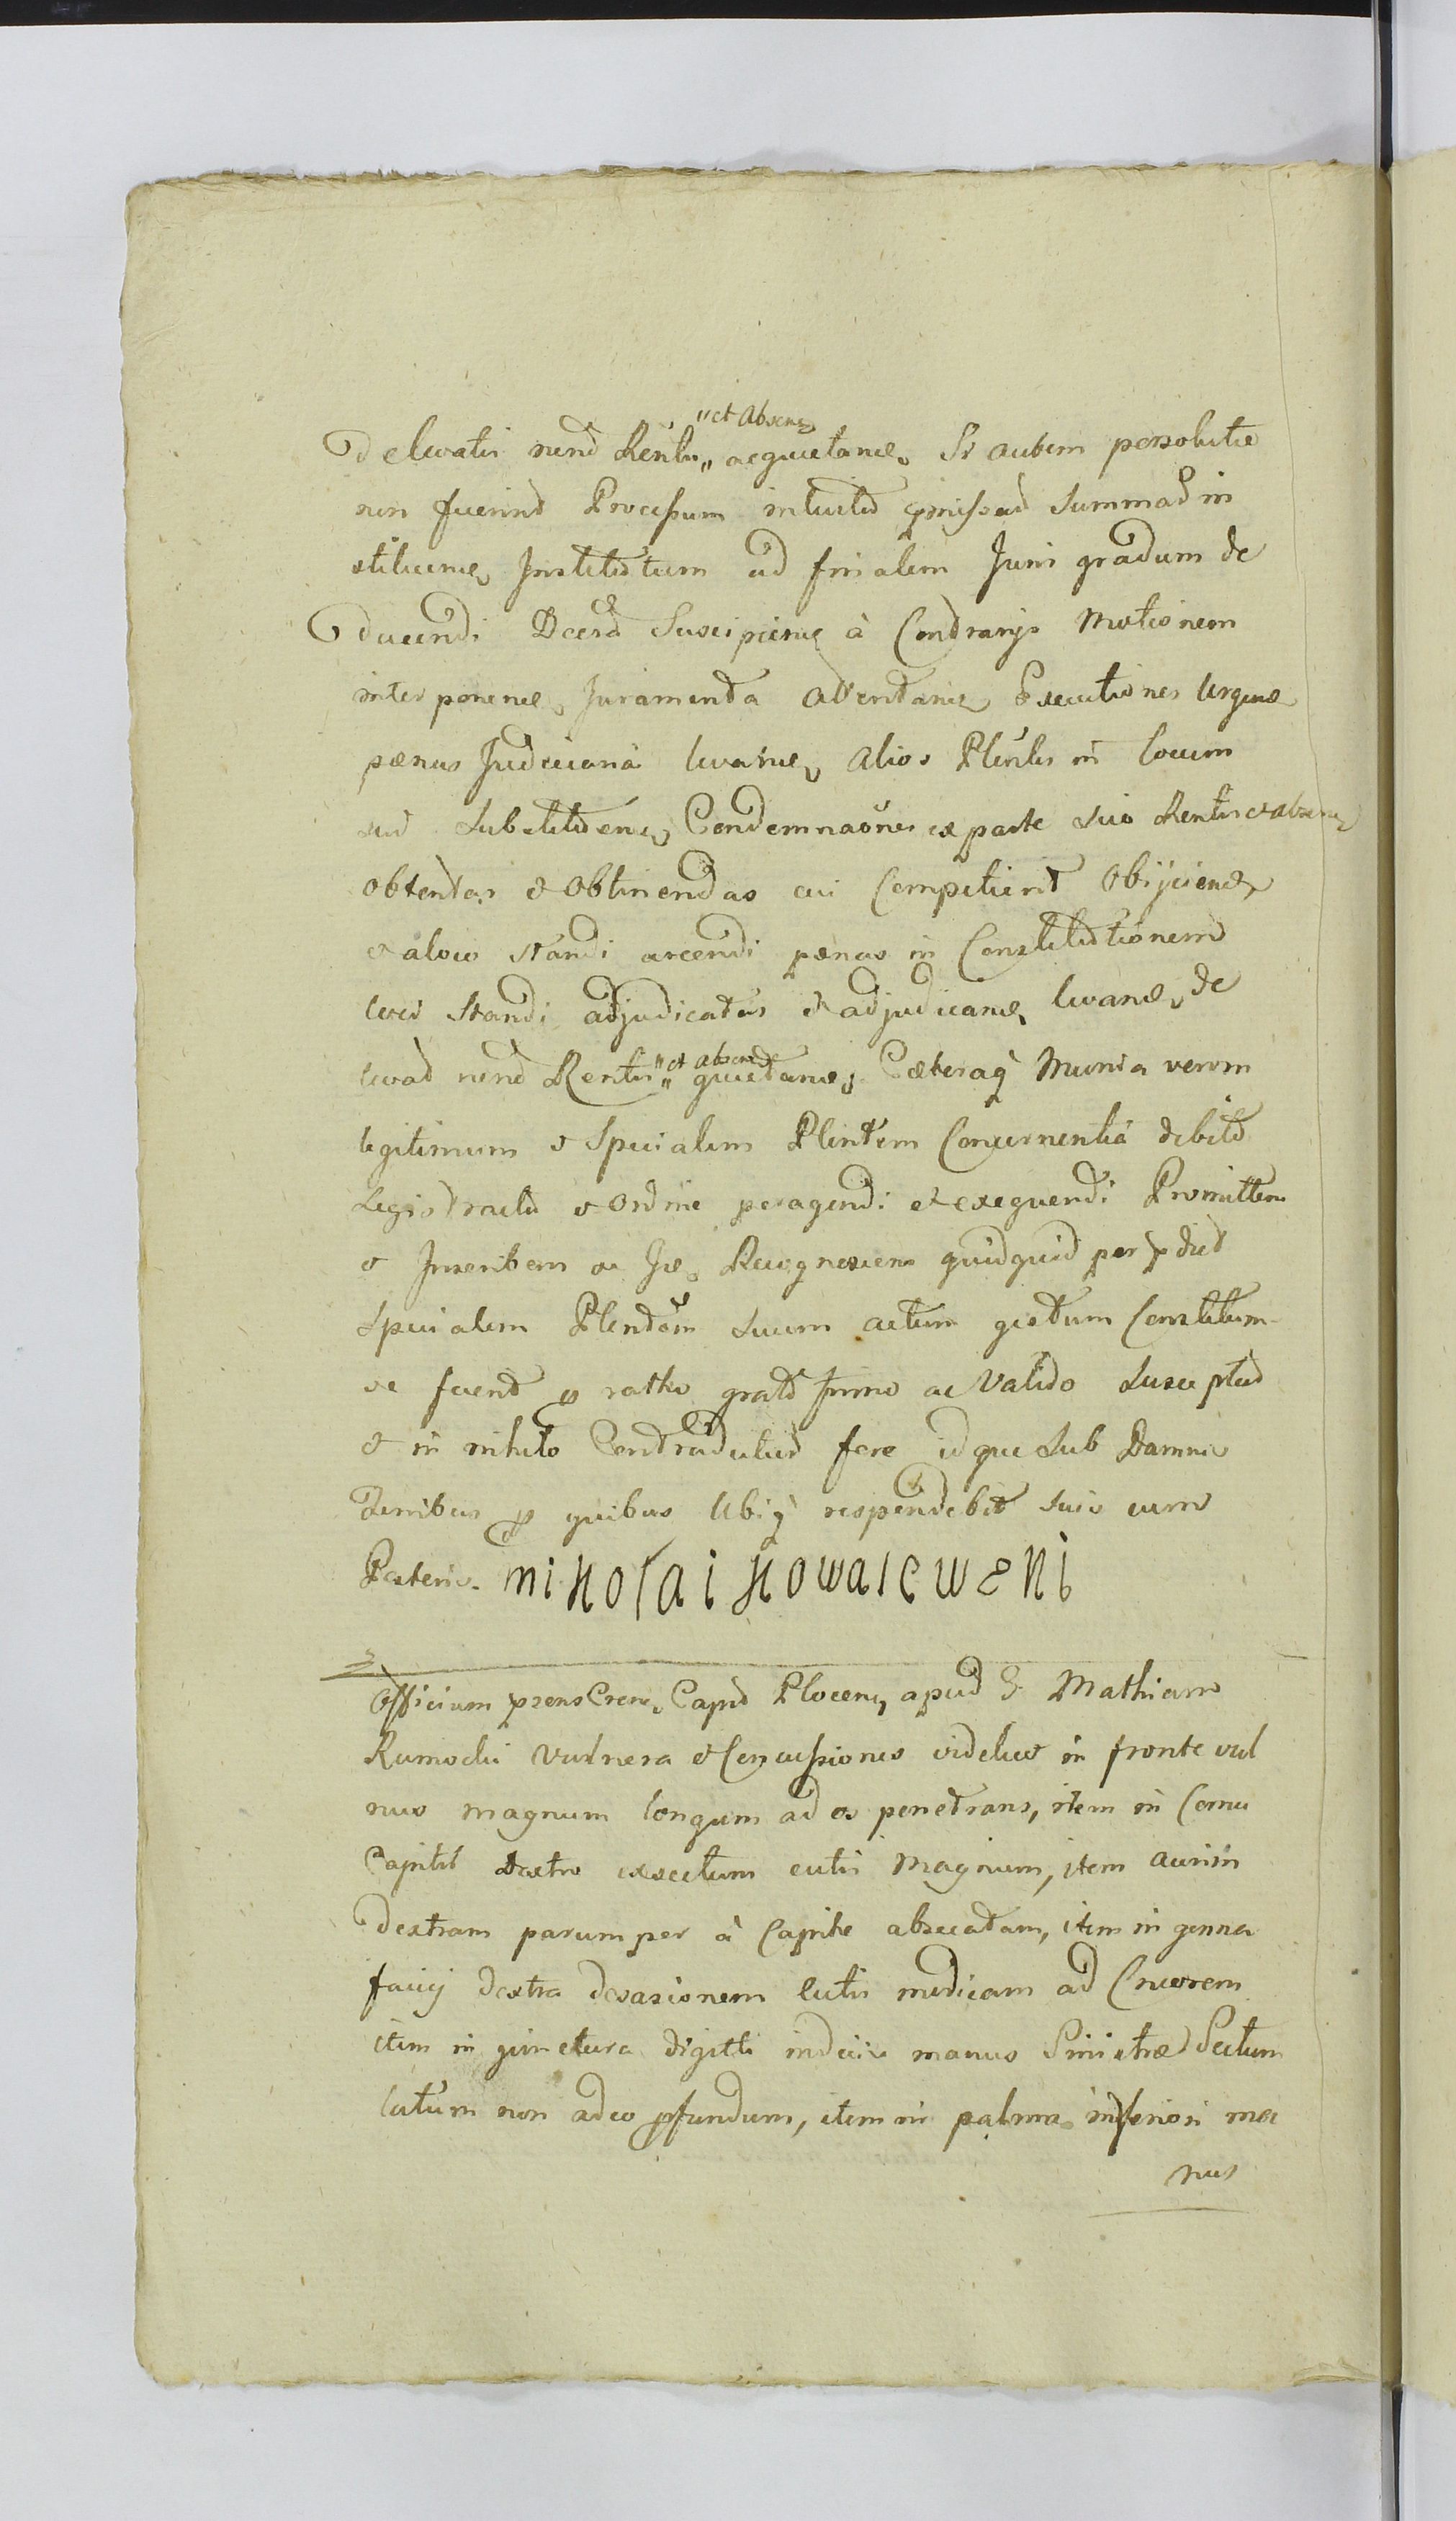 "et Absen
de levatis nend Rentis" acquietand. Si autem persolutæ
non fuerind Processum intuitu pmissad Summad in
stituend, Institutum ad finalem Juris gradum de
ducendi Dcera Suscipiend à Contrarijs Motionem
interponend, Juramenta attentand Executiones Urgend
pænas Judiciaria luand, alios Plentes in locum
sui Substituend, Condemnaones ex parte sui Rentis et absen
obtentas & obtinendas cui Competierit Obijciend,
et a loco standi arcendi pænas in Constitutionem
loci Standi adjudicatas et adjudicand, luand, de
luad nend Rentis " et absend quietand, Cæteraq Munia verum
legitimum & Specialem Plentem Concernentia debito
Legis tractu & Ordine peragendi et exequendi Promittens
& Inscribens ac hic Recognoscens quidquid per p dict
Specialem Plentem suum actum gestum Constitum
ve fuerit p ratho grato firmo ac Valido Suscepturd
& in nihilo Contradicturd fore idque Sub Damnis
Terribus p quibus Ubiq respondebit suis cum
Posteris. miKołai Kowalewski
Officium præns Cren, Capnd Plocen, apud G. Mathiam
Rumocki Vulnera & Concussiones videlicet in fronte vul
nus magnum longum ad os penetrans, item in Cornu
Capitis dextro exsectum cutis Magnum, item aurim
dextram parumper à Capite abscatam, item in genna
faciej dextra derasionem Cutis modicam ad Cruorem
item in junctura digitti indicis manus Sinistræ Sectum
Cutum non adeo pfundum, item in palma inferiori ma
nus